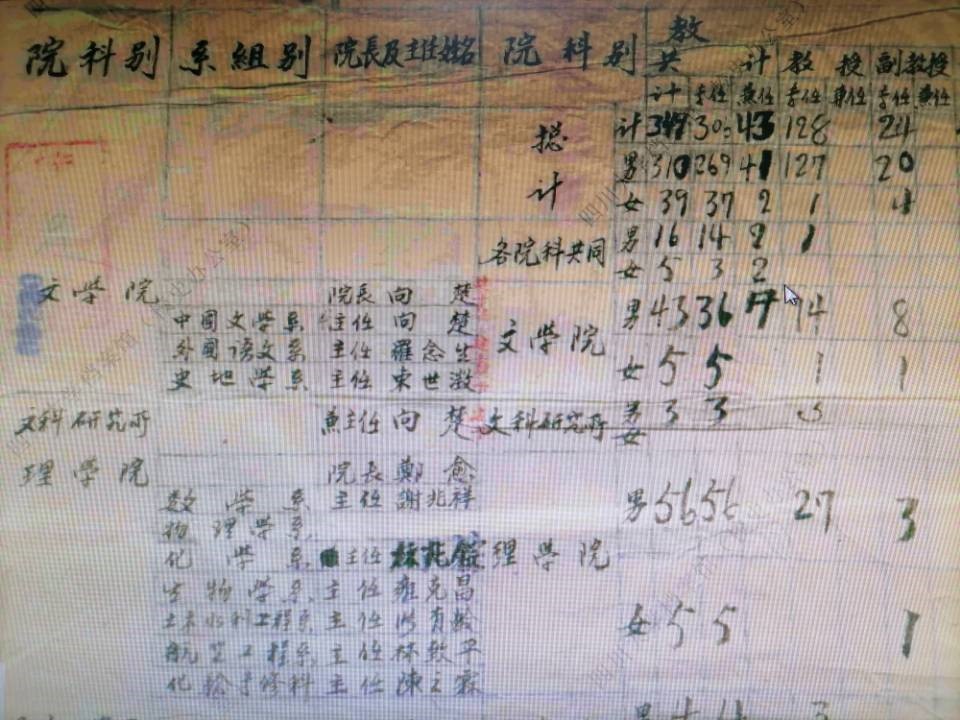 院科別 系組別 院長及主任姓名 院科別 教
共 計 教 授 副教授
計 專任 兼任 專任 專任 兼任
摠計 計 43 128 24
男 310 269 41 127 20
女 39 37 2 1 4
各院科共同 男 16 14 2 1
女 5 3 2
文學院 院長 向 楚
中國文學系 主任 向 楚
外國語文系 主任 羅念生
史地學系 主任 束世澂
文學院 男 43 36 7 14 8
女 5 5 1 1
文科研究所 兼主任 向 楚 文科研究所 男 3 3 3
女
理學院 院長 鄭 愈
數學系 主任 謝兆祥
物理學系
化學系 主任
理學院 男 56 56 27 3
生物學系 主任 雍克昌
土木水利工程系 主任
女 5 5 1
航空工程系 主任 林致平
主任 陳之霖
男